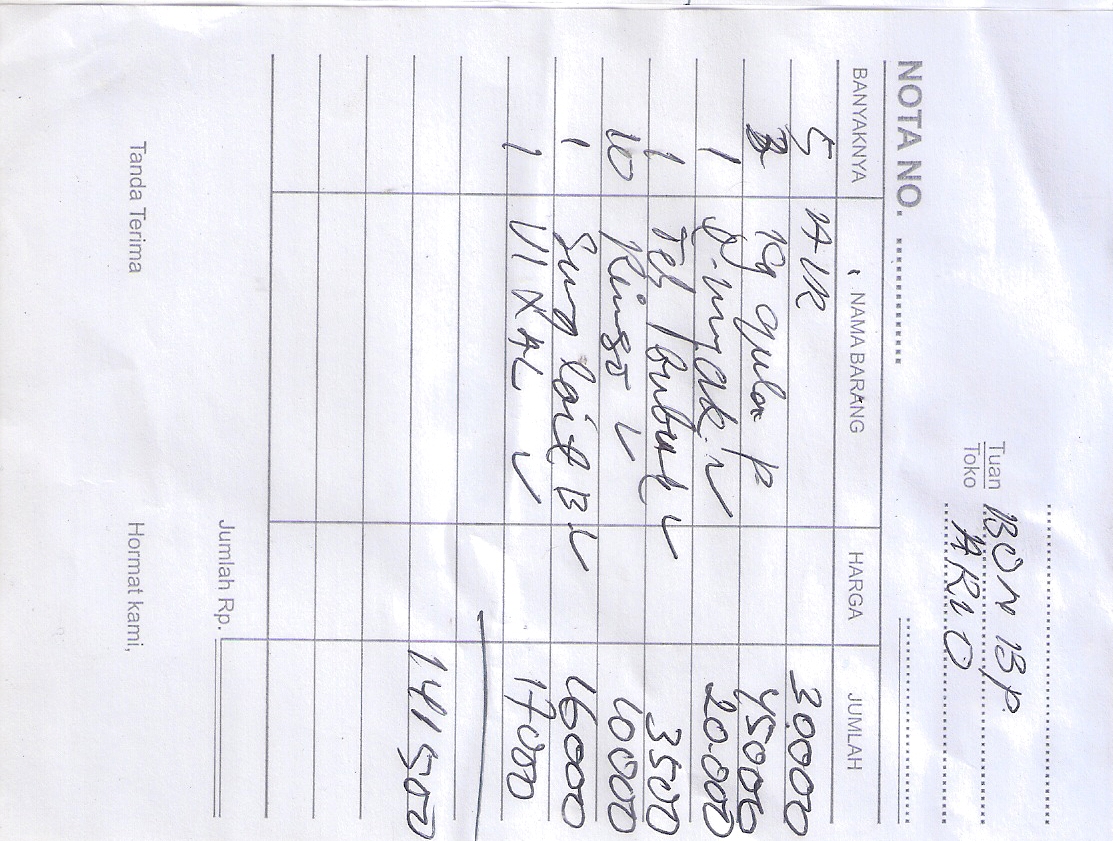 Tuan BON BP
Toko ARIO
NOTA NO.
BANYAKNYA NAMA BARANG HARGA JUMLAH
5 AIR 30000
3 kg gula P 45000
1 minyak 20.000
1 Teh bubuk 3500
10 Rinso 10000
1 Sunglait B 16000
1 VIXAL 17000
141500
Jumlah Rp.
Tanda Terima Hormat kami,